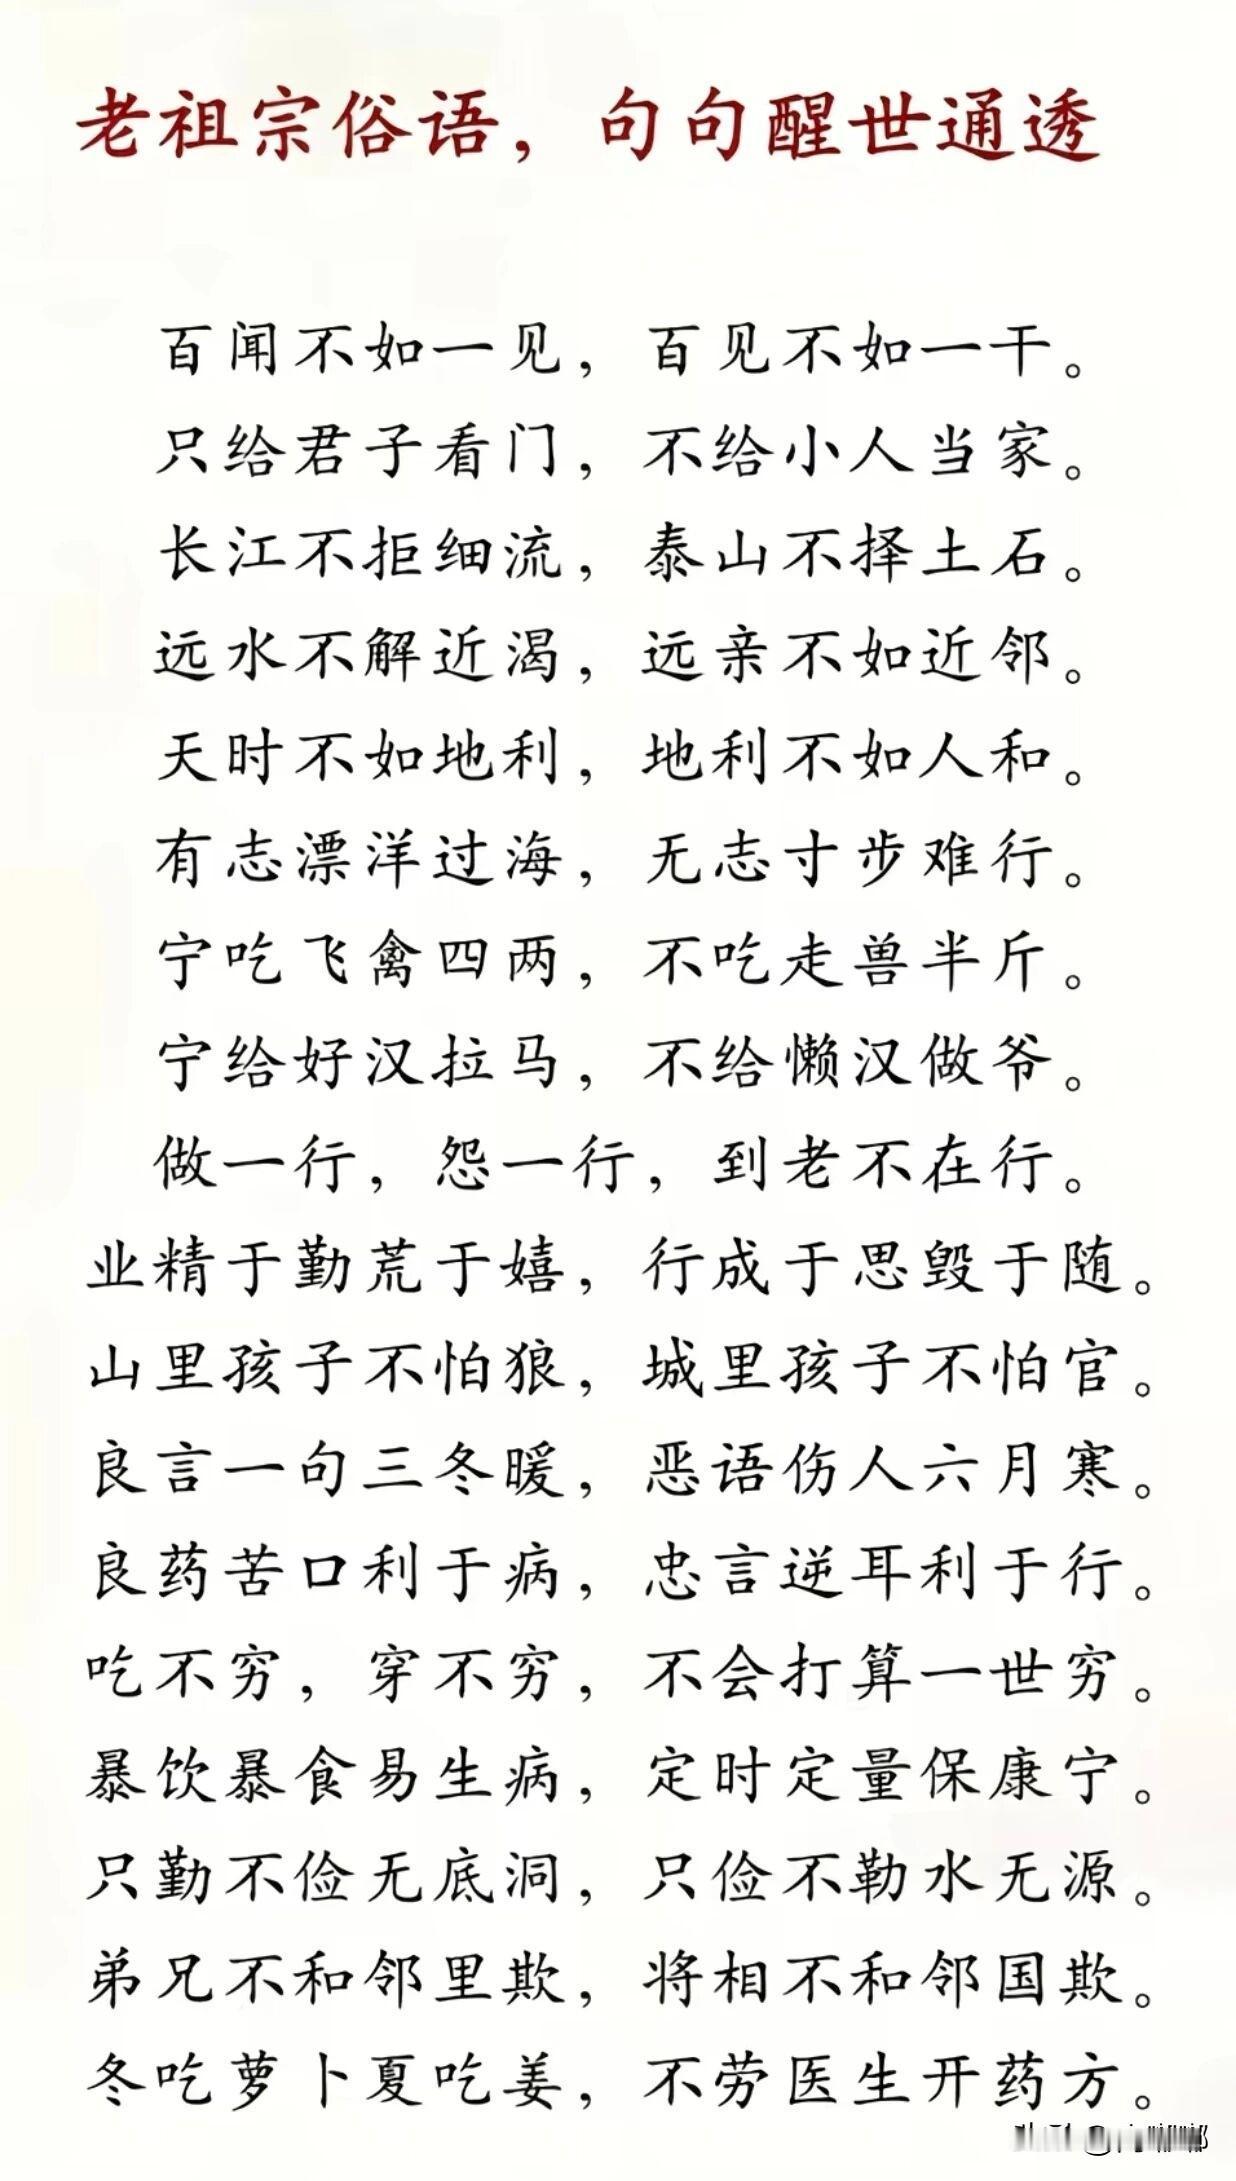 老祖宗俗语，句句醒世通透
百闻不如一见，百见不如一干。
只给君子看门，不给小人当家。
长江不拒细流，泰山不择土石。
远水不解近渴，远亲不如近邻。
天时不如地利，地利不如人和。
有志漂洋过海，无志寸步难行。
宁吃飞禽四两，不吃走兽半斤。
宁给好汉拉马，不给懒汉做爷。
做一行，怨一行，到老不在行。
业精于勤荒于嬉，行成于思毁于随。
山里孩子不怕狼，城里孩子不怕官。
良言一句三冬暖，恶语伤人六月寒。
良药苦口利于病，忠言逆耳利于行。
吃不穷，穿不穷，不会打算一世穷。
暴饮暴食易生病，定时定量保康宁。
只勤不俭无底洞，只俭不勒水无源。
弟兄不和邻里欺，将相不和邻国欺。
冬吃萝卜夏吃姜，不劳医生开药方。